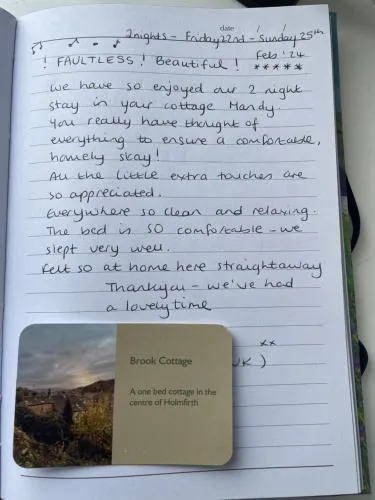 date
2 nights - Friday 22nd - Sunday 25th
Feb '24
! FAULTLESS! Beautiful! *****
We have so enjoyed our 2 night
stay in your cottage Mandy.
You really have thought of
everything to ensure a comfortable,
homely stay!
All the little extra touches are
so appreciated.
Everywhere so clean and relaxing.
The bed is so comfortable - we
slept very well.
Felt so at home here straightaway
Thankyou - we've had
a lovely time
xx
UK)
Brook Cottage
A one bed cottage in the
centre of Holmfirth